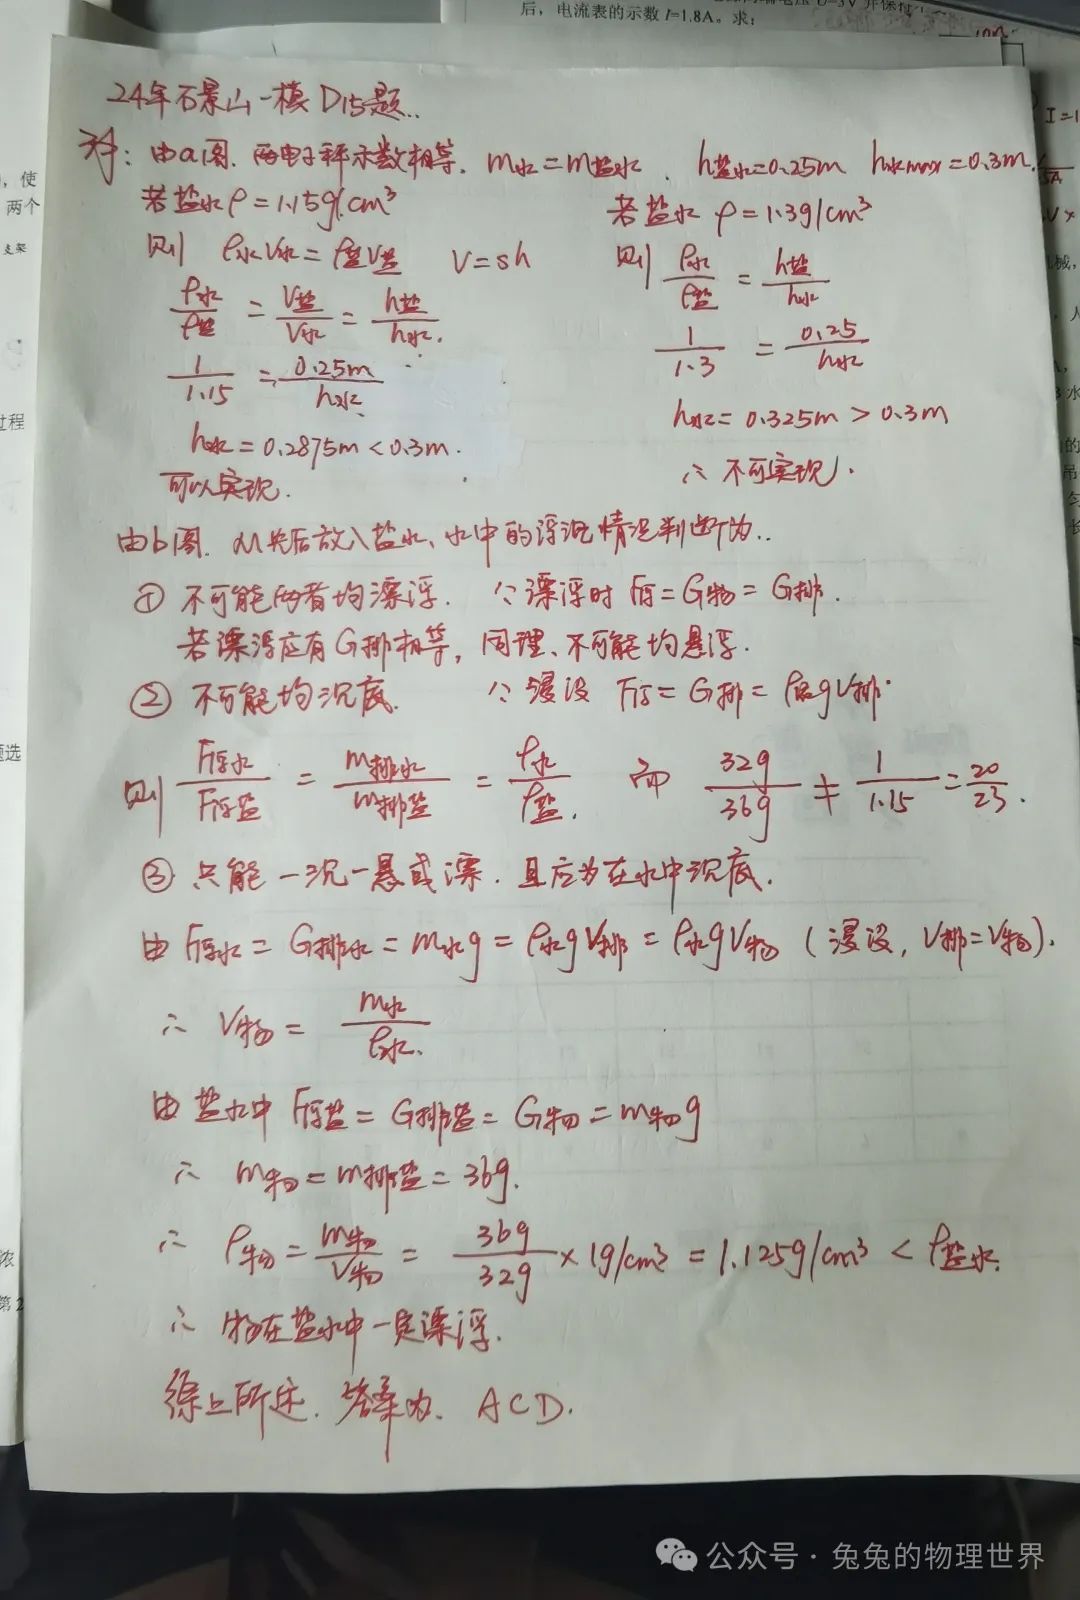 后，电流表的示数I=1.8A。求：
24年石景山一模D15题..
解：由a图.两电子秤示数相等.m水=m盐水. h盐水=0.25m h水max=0.3m.
若盐水ρ=1.15g/cm³
则 ρ水V水=ρ盐V盐 V=sh
ρ水/ρ盐=V盐/V水=h盐/h水.
1/1.15=0.25m/h水.
h水=0.2875m<0.3m.
可以实现.
若盐水ρ=1.3g/cm³
则 ρ水/ρ盐=h盐/h水
1/1.3=0.25/h水
h水=0.325m>0.3m
∴不可实现.
由b图.从先后放入盐水、水中的浮沉情况判断为..
① 不可能两者均漂浮. ∵漂浮时F浮=G物=G排.
若漂浮应有G排相等，同理、不可能均悬浮.
② 不可能均沉底. ∵浸没 F浮=G排=ρ液gV排.
则 F浮水/F浮盐=m排水/m排盐=ρ水/ρ盐. 而 32g/36g≠1/1.15=20/23.
③ 只能一沉一悬或漂.且应为在水中沉底.
由F浮水=G排水=m水g=ρ水gV排=ρ水gV物（浸没，V排=V物).
∴ V物=m水/ρ水.
由盐水中F浮盐=G排盐=G物=m物g
∴ m物=m排盐=36g.
∴ ρ物=m物/V物=36g/32g×1g/cm³=1.125g/cm³<ρ盐水.
∴ 物在盐水中一定漂浮.
综上所述.答案为. ACD.
公众号·兔兔的物理世界